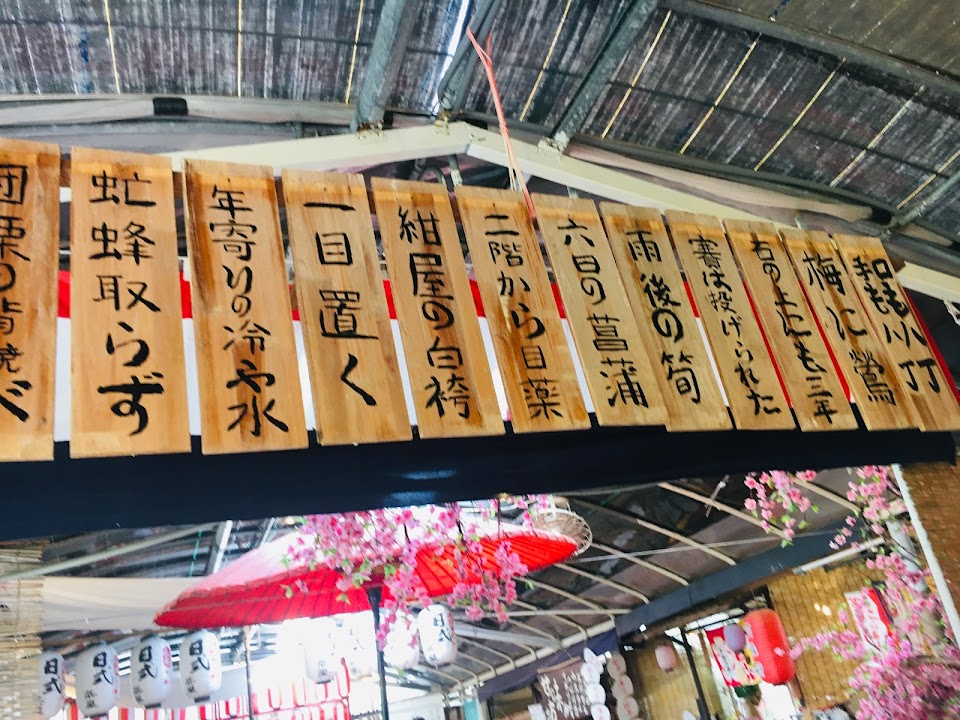 梅に鶯
石の上にも三年
賽は投げられた
雨後の筍
六日の菖蒲
二階から目薬
紺屋の白袴
一目置く
年寄りの冷や水
虻蜂取らず
団栗の背べ
日式
日式
日式
日式
日式